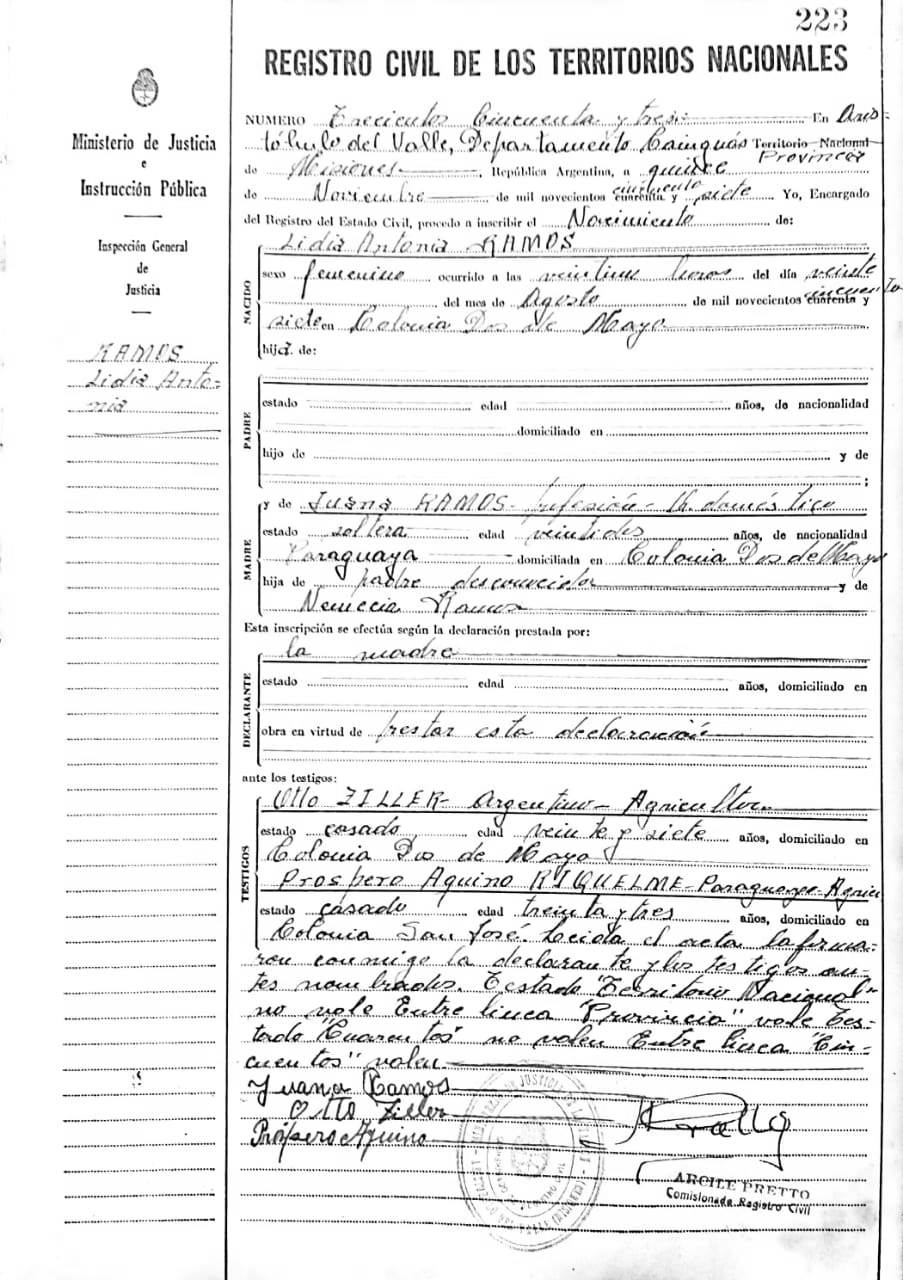 223
REGISTRO CIVIL DE LOS TERRITORIOS NACIONALES
Ministerio de Justicia
e
Instrucción Pública
Inspección General
de
Justicia
RAMOS
Lidia Anto-
nia
NUMERO Trecientos Cincuenta y tres En Aris-
tóbulo del Valle, Departamento Cainguás Territorio Nacional
Provincia
de Misiones, República Argentina, a quince
de Noviembre de mil novecientos cuarenta y cincuenta siete Yo, Encargado
del Registro del Estado Civil, procedo a inscribir el Nacimiento de:
NACIDO
Lidia Antonia RAMOS
sexo femenino ocurrido a las veintiun horas del día veinte
del mes de Agosto de mil novecientos cuarenta y cincuenta
siete en Colonia Dos de Mayo
hija de:
PADRE
estado edad años, de nacionalidad
domiciliado en
hijo de y de
;
MADRE
y de Juana RAMOS- profesión- Q. doméstico
estado soltera edad veintidos años, de nacionalidad
Paraguaya domiciliada en Colonia Dos de Mayo
hija de padre desconocido y de
Nemecia Ramos
Esta inscripción se efectúa según la declaración prestada por:
DECLARANTE
la madre
estado edad años, domiciliado en
obra en virtud de prestar esta declaración
ante los testigos:
TESTIGOS
Otto ZILLER- Argentino- Agricultor
estado casado edad veinte y siete años, domiciliado en
Colonia Dos de Mayo
Prospero Aquino RIQUELME- Paraguayo- Agricu
estado casado edad treinta y tres años, domiciliado en
Colonia San José. Leida el acta la firma-
ron conmigo la declarante y los testigos an-
tes nombrados. Testado "Territorio Nacional"
no vale Entre linea "Provincia" vale Tes-
tado "Cuarentos" no valen Entre linea "Cin-
cuentos" valen
Juana Ramos
Otto Ziller
Prospero Aquino
ARCILE PRETTO
Comisionado Registro Civil